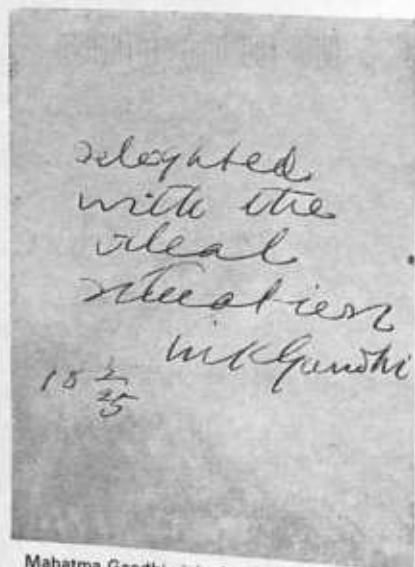 delighted
with the
ideal
situation
MKGandhi
18 2/25
Mahatma Gandhi